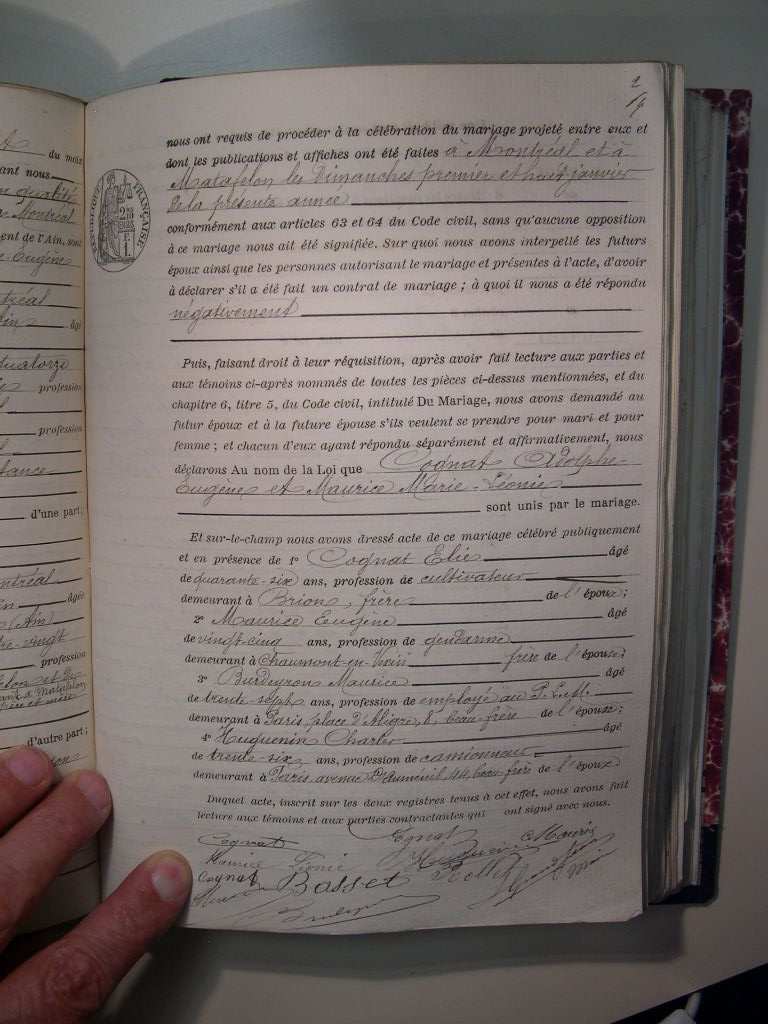 du mois
ant nous
n qualité
Montréal
ent de l'Ain, sous
Eugène
ntréal
âgé
quatorze
profession
profession
tance
d'une part;
ntréal
âgée
(Ain)
vingt
profession
d'autre part;
RÉPUBLIQUE FRANÇAISE
2
nous ont requis de procéder à la célébration du mariage projeté entre eux et
dont les publications et affiches ont été faites à Montréal et à
Matafelon les Dimanches premier et huit janvier
de la présente année
conformément aux articles 63 et 64 du Code civil, sans qu'aucune opposition
à ce mariage nous ait été signifiée. Sur quoi nous avons interpellé les futurs
époux ainsi que les personnes autorisant le mariage et présentes à l'acte, d'avoir
à déclarer s'il a été fait un contrat de mariage ; à quoi il nous a été répondu
négativement
Puis, faisant droit à leur réquisition, après avoir fait lecture aux parties et
aux témoins ci-après nommés de toutes les pièces ci-dessus mentionnées, et du
chapitre 6, titre 5, du Code civil, intitulé Du Mariage, nous avons demandé au
futur époux et à la future épouse s'ils veulent se prendre pour mari et pour
femme ; et chacun d'eux ayant répondu séparément et affirmativement, nous
déclarons Au nom de la Loi que Cognat Adolphe
Eugène et Maurice Marie-Léonie
sont unis par le mariage.
Et sur-le-champ nous avons dressé acte de ce mariage célébré publiquement
et en présence de 1º Cognat Elie âgé
de quarante-six ans, profession de cultivateur
demeurant à Brion, frère de l'époux;
2º Maurice Eugène âgé
de vingt-cinq ans, profession de gendarme
demeurant à Chaumont-en-Vexin frère de l'épouse;
3º Burdeyron Maurice âgé
de trente-sept ans, profession de employé au
demeurant à Paris, place d'Aligre, 8, beau-frère de l'épouse;
4º Huguenin Charles âgé
de trente-six ans, profession de camionneur
demeurant à Paris avenue Daumesnil beau-frère de l'épouse
Duquel acte, inscrit sur les deux registres tenus à cet effet, nous avons fait
lecture aux témoins et aux parties contractantes qui ont signé avec nous.
Cognat Cognat
Maurice Léonie E. Maurice
Cognat Basset